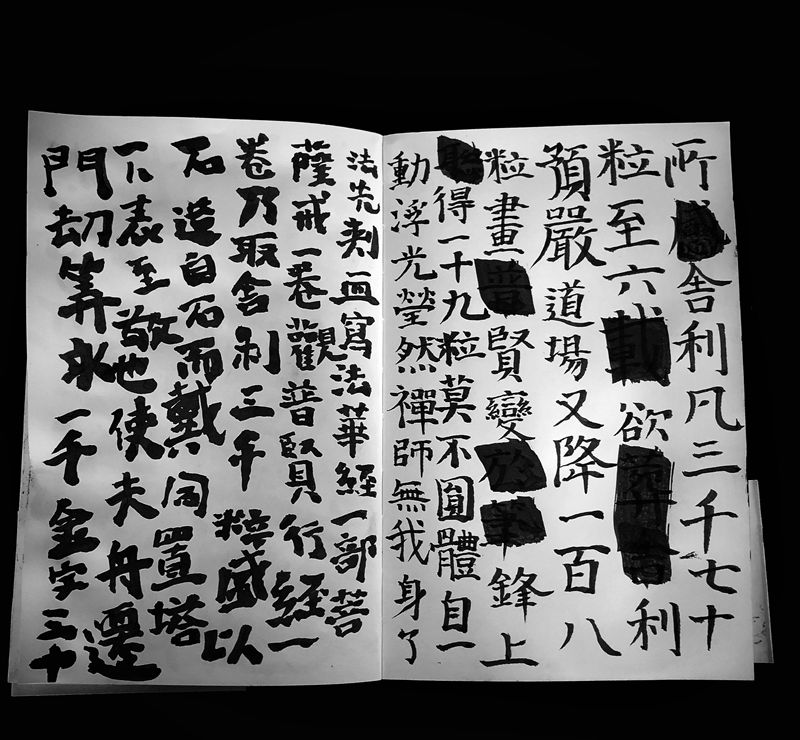 所感舍利凡三千七十
粒至六載欲葬舍利
預嚴道場又降一百八
粒畫普賢變於筆鋒上
聯得一十九粒莫不圓體自一
動浮光瑩然禪師無我身了
法先刺血寫法華經一部菩
薩戒一卷觀普賢行經一
卷乃取舍利三千粒盛以
石造自石而戴同置塔
下表至敬也使夫舟遷
門劫算永一千金字三十